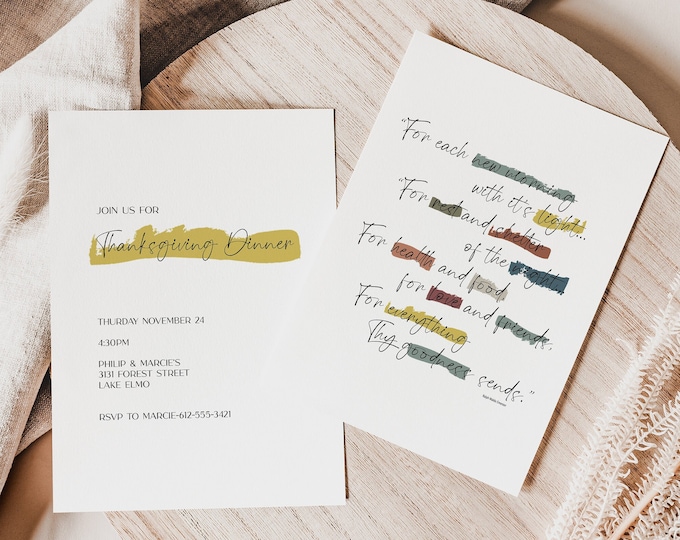 JOIN US FOR
Thanksgiving Dinner
THURSDAY NOVEMBER 24
4:30PM
PHILIP & MARCIE'S
3131 FOREST STREET
LAKE ELMO
RSVP TO MARCIE-612-555-3421
"For each new morning
with it's light...
"For rest and shelter
of the night,
For health and food,
for love and friends,
For everything
Thy goodness sends."